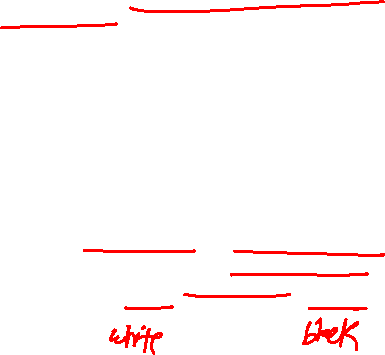 white black